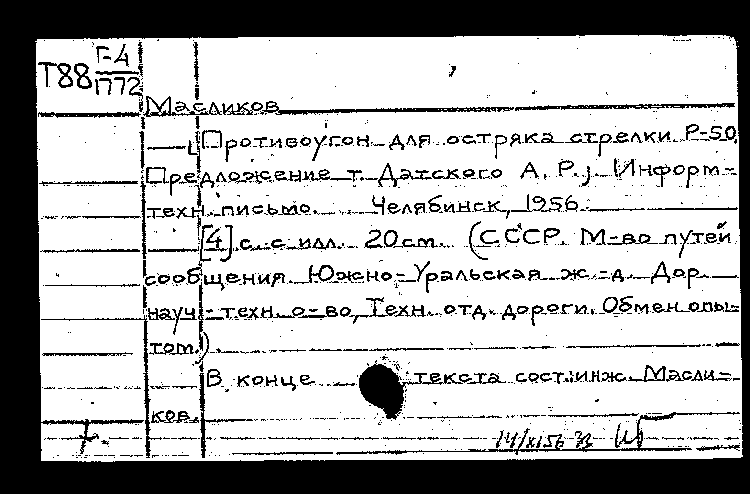 Т88 Г-4
П772
Масликов
Противоугон для остряка стрелки Р-50.
Предложение т. Датского А. Р.; Информ-
техн. письмо. Челябинск, 1956.
[4] с. с илл. 20 см. (СССР. М-во путей
сообщения. Южно-Уральская ж.-д. Дор.
науч.-техн. о-во, Техн. отд. дороги. Обмен опы-
том.)
В конце текста сост.: инж. Масли-
ков.